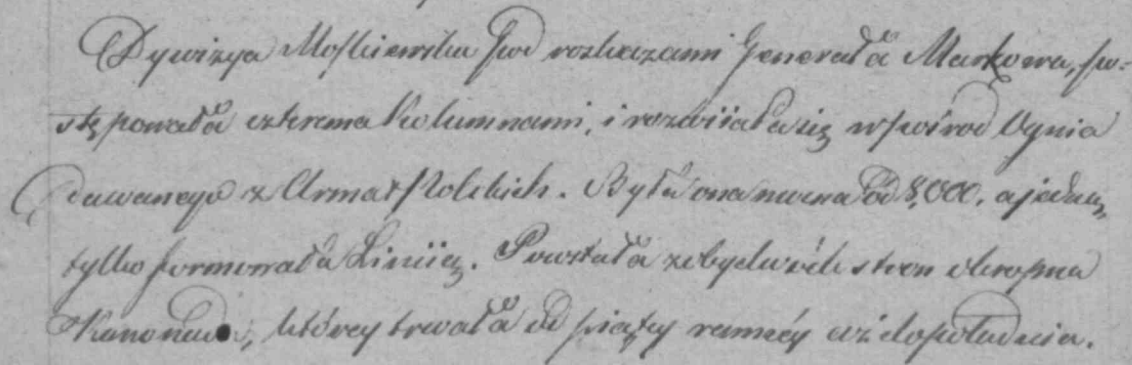 Dywizya Moskiewska pod rozkazami Generała Markowa, po-
stępowała czterema Kolumnami, i rozwiiała się wpośrod Ognia
dawanego z Armat Polskich. Była ona mocna od 8,000, a jedną
tylko formowała Liniią. Powstała z obydwóch stron okropna
Kanonada, którey trwała od piątey ranney aż do południa.